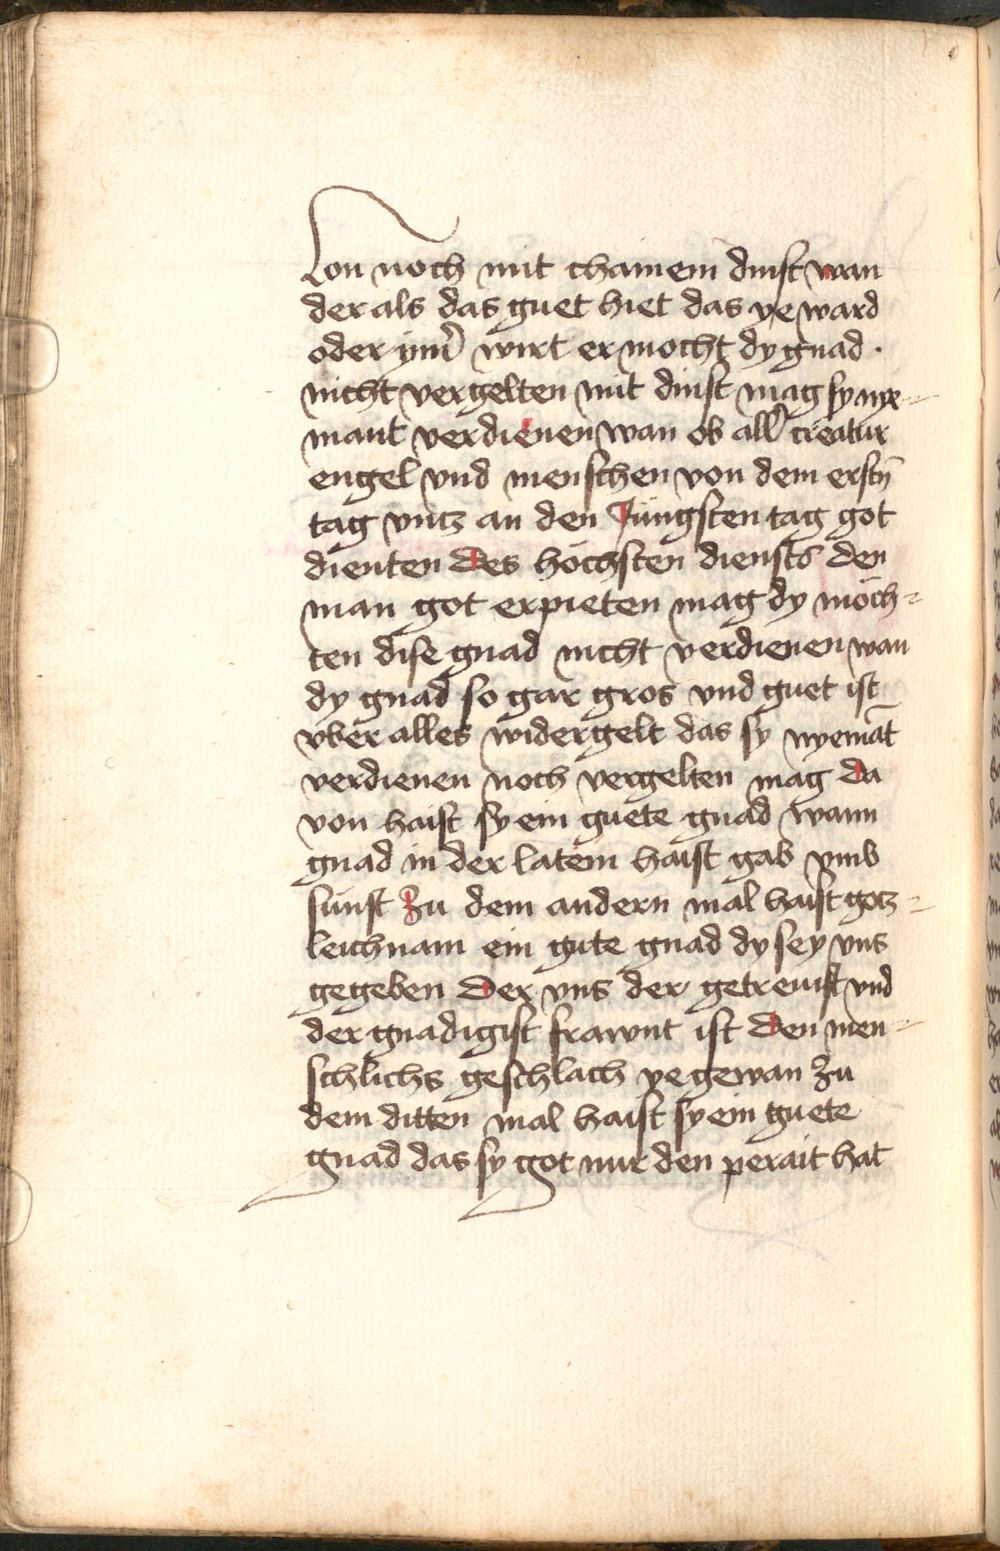 Lon noch mit chainem dinst wan
der als das guet hiet das ye ward
oder ym̃ wirt er mocht dy gnad ·
nicht vergelten mit dinst mag sy nye⸗
mant verdienen wan ob all̃ creatur
engel vnd menschen von dem erstñ
tag vntz an den Jungsten tag got
dienten des höchsten diensts den
man got erpieten mag dy möch⸗
ten dise gnad nicht verdienen wan
dy gnad so gar gros vnd guet ist
vber alles widergelt das sy nyemãt
verdienen noch vergelten mag da
von haist sy ein guete gnad wann
gnad in der latein haist gab vmb
sunst Zu dem andern mal haist gotz⸗
leichnam ein gute gnad dy sey vns
gegeben Der vns der getreuist vnd
der gnadigist frawnt ist Den men⸗
schlichs geschlach ye gewan Zu
dem ditten mal haist sy ein guete
gnad das sy got nur den perait hat